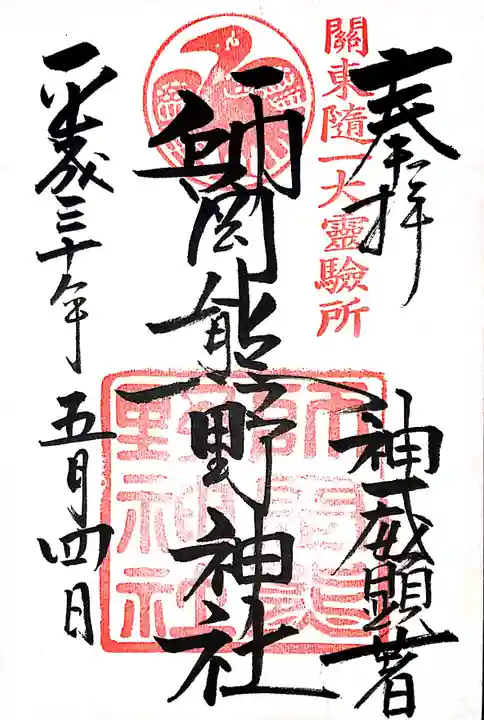 奉拝
神威顕著
關東隨一大靈驗所
師岡熊野神社
平成三十年五月四日
師岡熊野神社